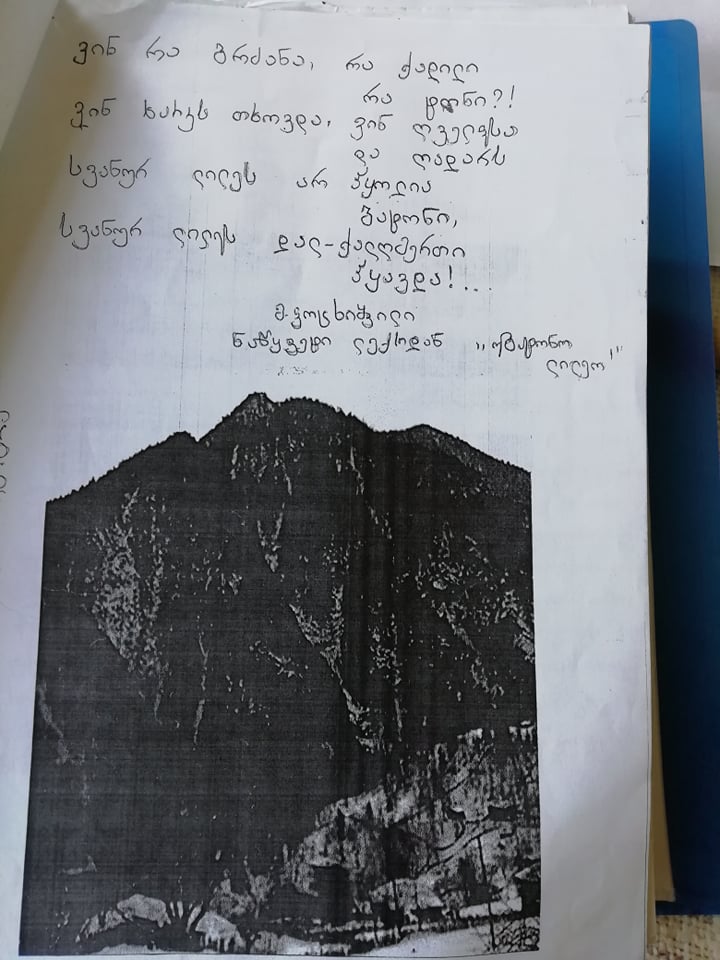 ვინ რა ბრძანა, რა ქადილი
რა ტონი?!
ვინ ხარკს თხოვდა, ვინ ღველფსა
და ღადარს
სვანურ ლილეს არ ჰყოლია
ბატონი,
სვანურ ლილეს დალ-ქალღმერთი
ჰყავდა!...
მ. ფოცხიშვილი
ნაწყვეტი ლექსიდან „უბატონო
ლილეო"